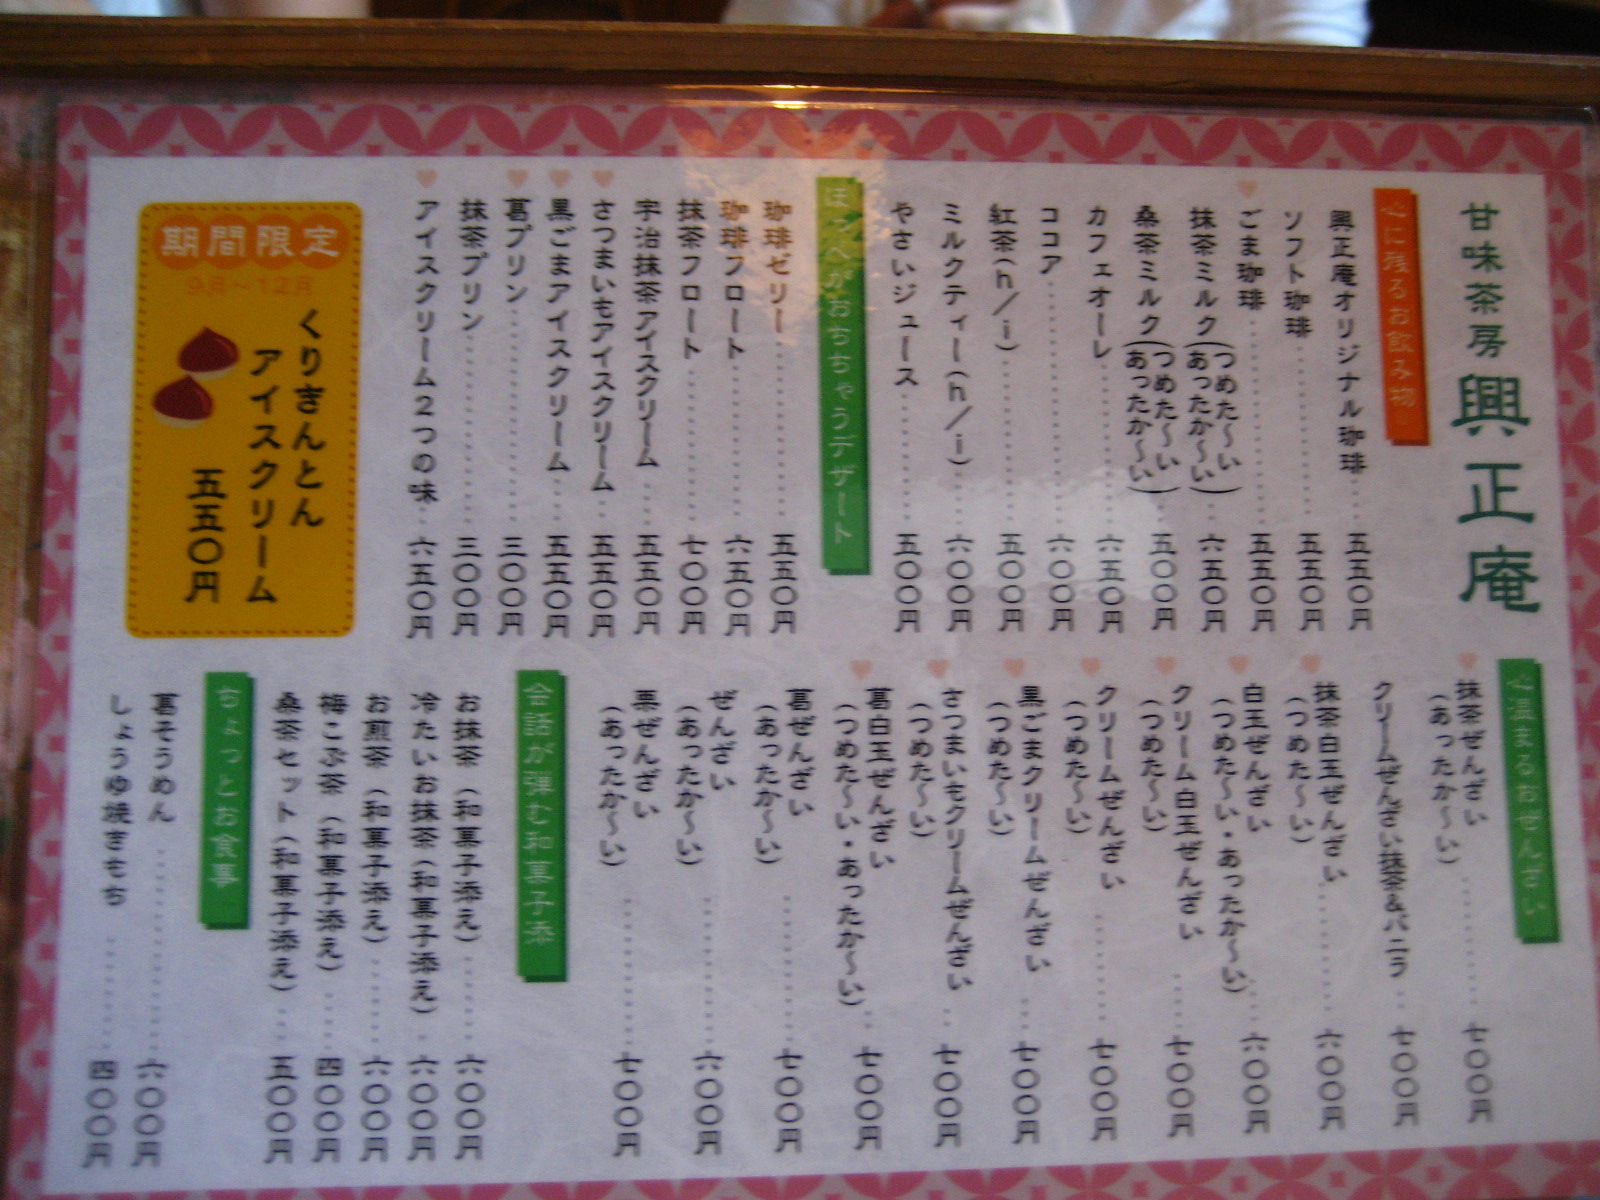 甘味茶房 興正庵
心に残るお飲み物
興正庵オリジナル珈琲 五五〇円
ソフト珈琲 五五〇円
ごま珈琲 五五〇円
抹茶ミルク(つめた〜い あったか〜い) 六五〇円
桑茶ミルク(つめた〜い あったか〜い) 五〇〇円
カフェオーレ 六五〇円
ココア 六〇〇円
紅茶(h/i) 五〇〇円
ミルクティー(h/i) 六〇〇円
やさいジュース 五〇〇円
ほっぺがおちちゃうデザート
珈琲ゼリー 五五〇円
珈琲フロート 六五〇円
抹茶フロート 七〇〇円
宇治抹茶アイスクリーム 五五〇円
さつまいもアイスクリーム 五五〇円
黒ごまアイスクリーム 五五〇円
葛プリン 三〇〇円
抹茶プリン 三〇〇円
アイスクリーム2つの味 六五〇円
期間限定
9月〜12月
くりきんとん
アイスクリーム
五五〇円
心温まるおぜんざい
抹茶ぜんざい
(あったか〜い) 七〇〇円
クリームぜんざい抹茶&バニラ 七〇〇円
抹茶白玉ぜんざい
(つめた〜い) 六〇〇円
白玉ぜんざい
(つめた〜い・あったか〜い) 六〇〇円
クリーム白玉ぜんざい
(つめた〜い) 七〇〇円
クリームぜんざい
(つめた〜い) 七〇〇円
黒ごまクリームぜんざい
(つめた〜い) 七〇〇円
さつまいもクリームぜんざい
(つめた〜い) 七〇〇円
葛白玉ぜんざい
(つめた〜い・あったか〜い) 七〇〇円
葛ぜんざい
(あったか〜い) 七〇〇円
ぜんざい
(あったか〜い) 六〇〇円
栗ぜんざい
(あったか〜い) 七〇〇円
会話が弾む和菓子添
お抹茶(和菓子添え) 六〇〇円
冷たいお抹茶(和菓子添え) 六〇〇円
お煎茶(和菓子添え) 六〇〇円
梅こぶ茶(和菓子添え) 四〇〇円
桑茶セット(和菓子添え) 五〇〇円
ちょっとお食事
葛そうめん 六〇〇円
しょうゆ焼きもち 四〇〇円